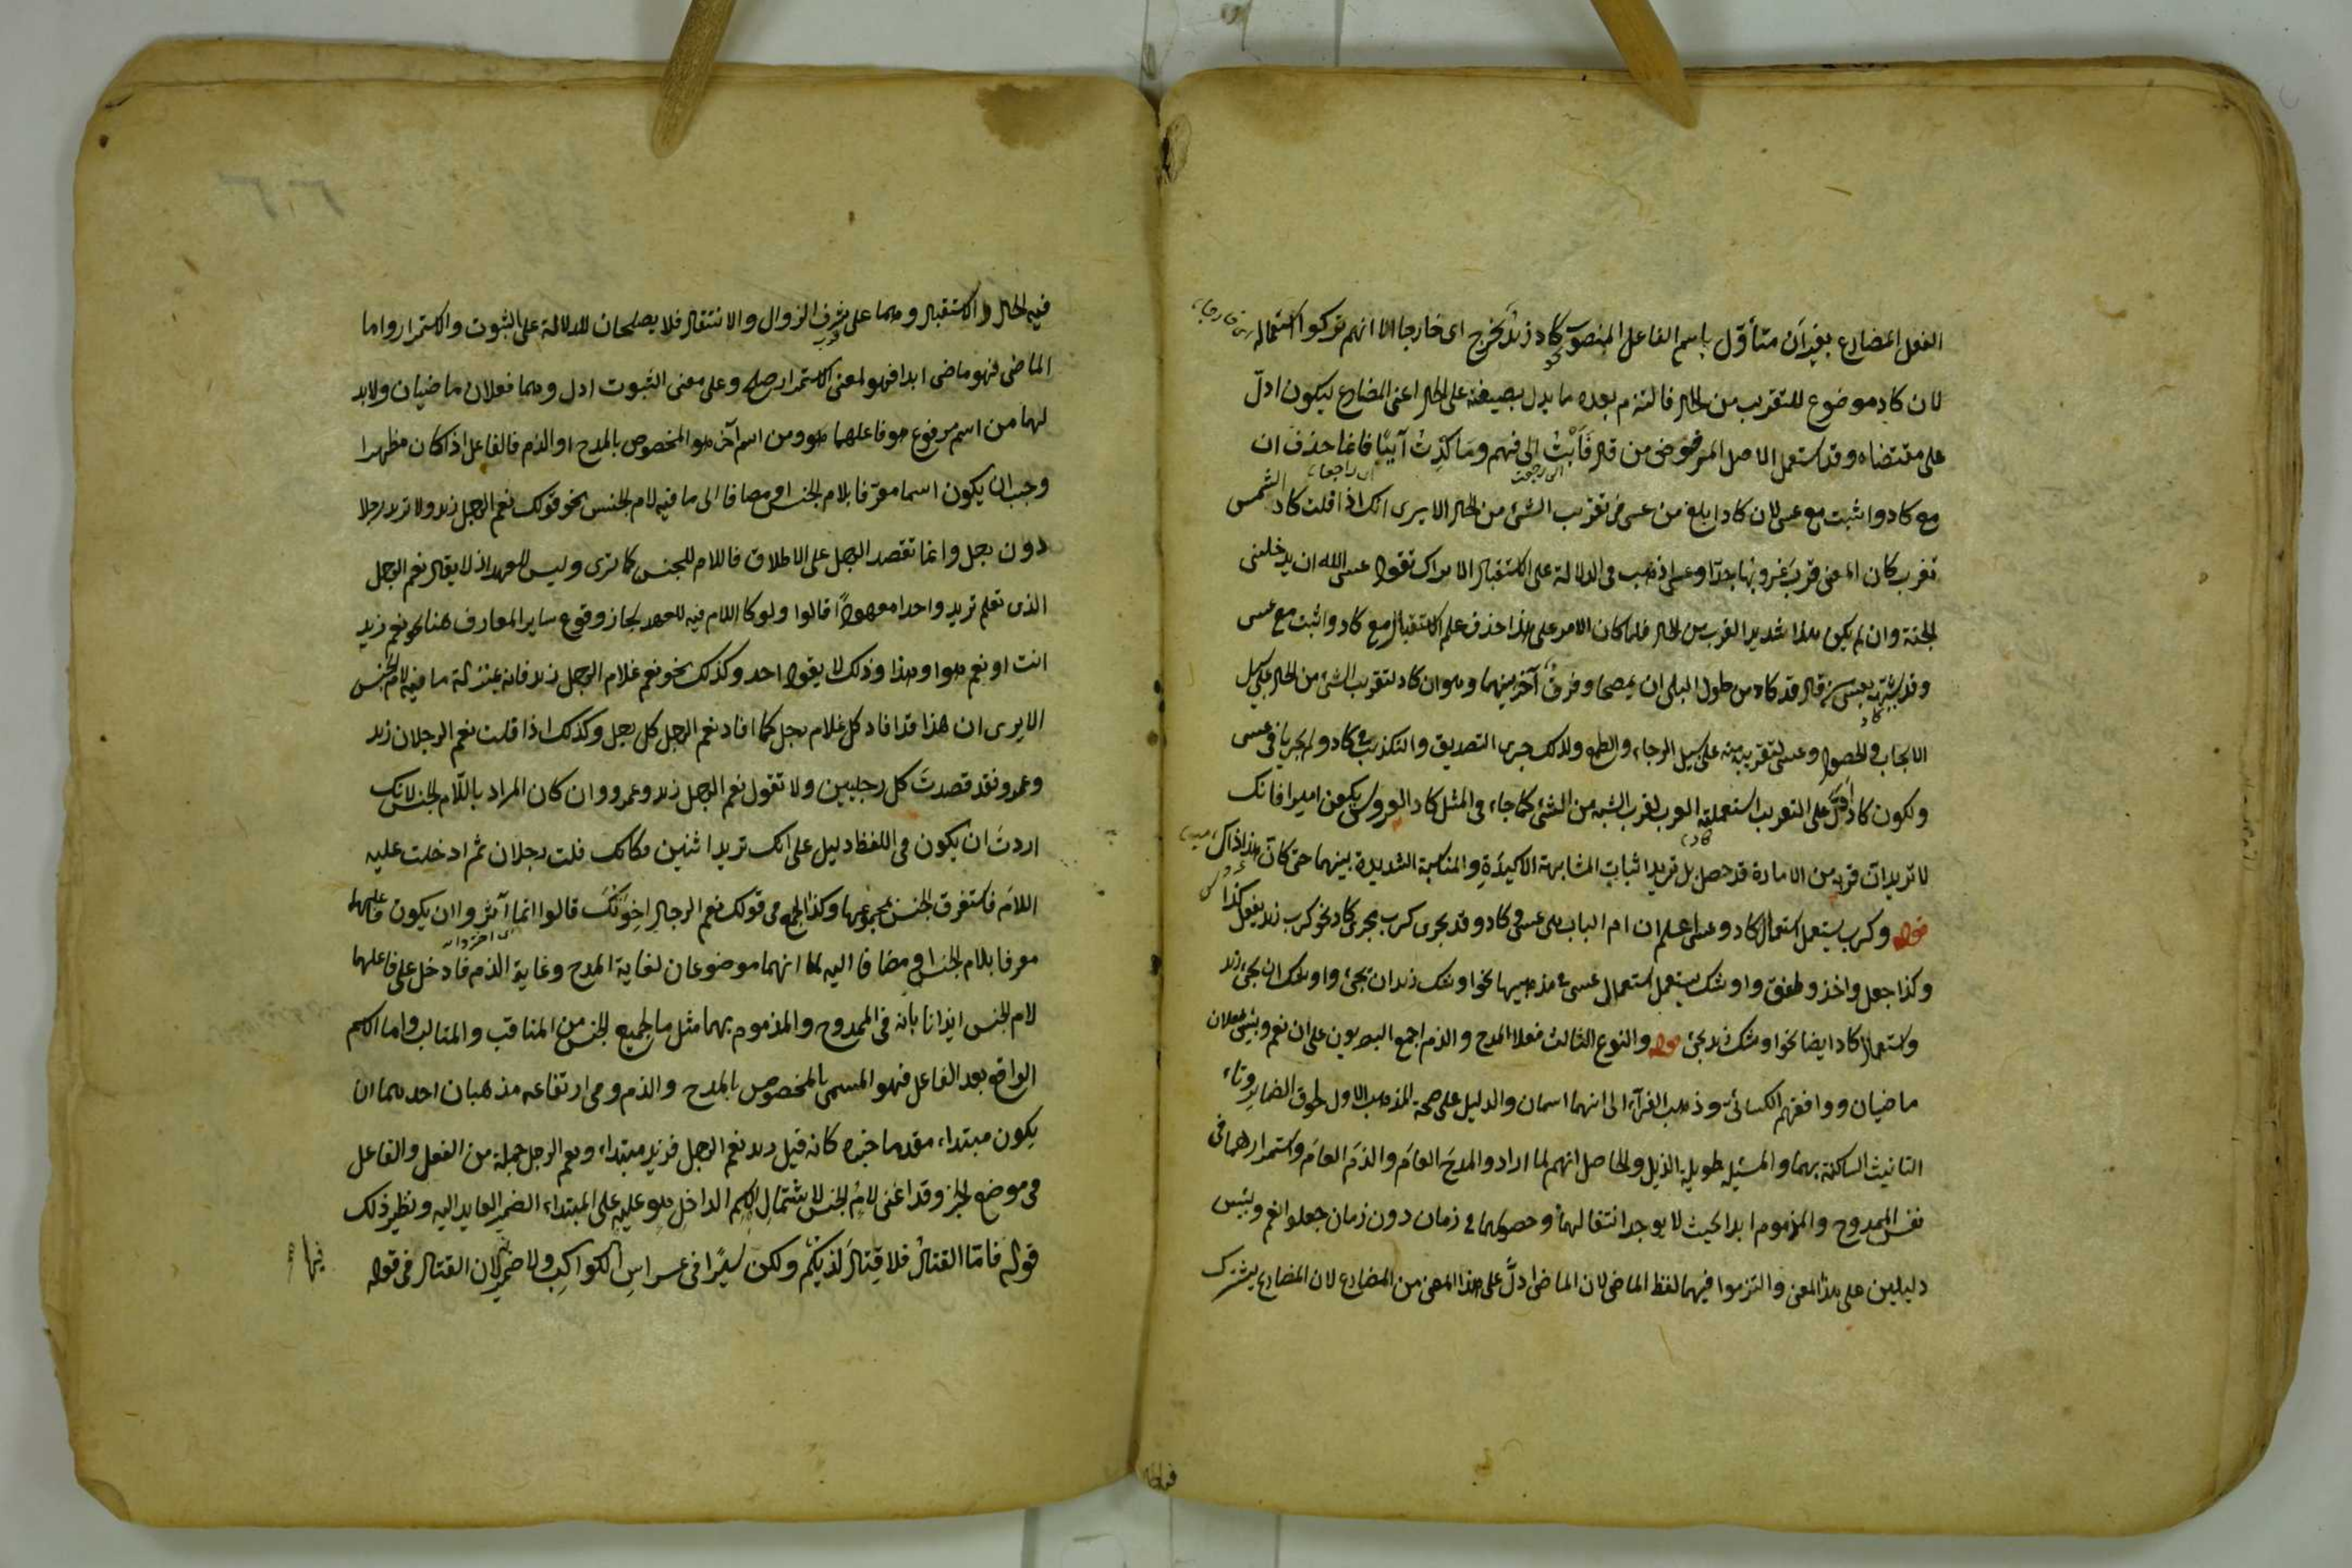 الفعل المضارع بغير أن متأوّل باسم الفاعل المنصوب نحو كاد زيد يخرج اى خارجا الا انهم تركوا استعماله
لان كاد موضوع للتقريب من الحال فالتزم بعده ما يدل بصيغته على الحال اعنى المضارع ليكون ادلّ
على مقتضاه وقد استعمل الاصل المرفوض من قال فَاُبْتُ الى فهم وما كِدْتُ آيبًا فانما حذف ان
اى رجعت اى راجعا
مع كاد واثبت مع عسى لان كاد ابلغ من عسى فى تقريب الشئ من الحال الا يرى انك اذا قلت كاد الشمس
تغرب كان المعنى قرب غروبها جدّا وعسى اذهب فى الدلالة على الاستقبال الا يراك تقول عسى الله ان يدخلنى
الجنة وان لم يكن هذا شديد القرب من الحال فلما كان الامر على هذا حذف علم الاستقبال مع كاد واثبت مع عسى
وقد شبّه بعسى من قال قد كاد من طول البلى ان يمصحا وفرقٌ آخر بينهما وهو ان كاد لتقريب الشئ من الحال على سبيل
الايجاب والحصول وعسى لتقريبه منه على سبيل الرجاء والطمع ولذلك جرى التصديق والتكذيب فى كاد ولم يجريا فى عسى
ولكون كاد ادلّ على التقريب استعملته العرب لقرب الشبه من الشئ كما جاء فى المثل كاد العروس يكون اميرا فانك
لا تريد ان قربه من الامارة قد حصل بل تريد اثبات المشابهة الاكيدة والمناسبة الشديدة بينهما حتى كان هذا ذاك
قوله وكرب يستعمل استعمال كاد وعسى اعلم ان ام الباب هى عسى وكاد وقد يجرى كرب مجرى كاد نحو كرب زيد يفعل كذا
وكذا جعل واخذ وطفق واوشك يستعمل استعمال عسى فى مذهبيها نحو اوشك زيد ان يجئ واوشك ان يجئ زيد
واستعمال كاد ايضا نحو اوشك زيد يجئ قوله والنوع الثالث فعلا المدح والذم اجمع البصريون على ان نعم وبئس فعلان
ماضيان ووافقهم الكسائى وذهب الفرّاء الى انهما اسمان والدليل على صحة المذهب الاول لحوق الضماير وتاء
التانيث الساكنة بهما والمسئلة طويلة الذيل والحاصل انهم لما ارادوا المدح العامّ والذمّ العامّ واستمرارهما فى
نفس الممدوح والمذموم ابدا بحيث لا يوجد انتقالهما وحصولهما فى زمان دون زمان جعلوا نعم وبئس
دليلين على هذا المعنى والتزموا فيهما لفظ الماضى لان الماضى ادلّ على هذا المعنى من المضارع لان المضارع يشترك
فيه الحال والاستقبال وهما على شرف الزوال والانتقال فلا يصلحان للدلالة على الثبوت والاستمرار واما
الماضى فهو ماضى ابدا فهو لمعنى الاستمرار اصلح وعلى معنى الثبوت ادل وهما فعلان ماضيان ولا بد
لهما من اسم مرفوع هو فاعلهما هو ومن اسم آخر هو المخصوص بالمدح او الذم فالفاعل اذا كان مظهرا
وجب ان يكون اسما معرّفا بلام الجنس او مضافا الى ما فيه لام الجنس نحو قولك نعم الرجل زيد ولا تريد رجلا
دون رجل وانما تقصد الرجل على الاطلاق فاللام للجنس كما ترى وليس للعهد اذ لا يقال نعم الرجل
الذى تعلم تريد واحدا معهودًا قالوا ولو كان اللام فيه للعهد لجاز وقوع ساير المعارف هنا نحو نعم زيد
انت او نعم هو او هذا وذلك لا يقوله احد وكذلك نحو نعم غلام الرجل زيد فانه بمنزلة ما فيه لام الجنس
الا يرى ان هذا قد افاد كل غلام رجل كما افاد نعم الرجل كل رجل وكذلك اذا قلت نعم الرجلان زيد
وعمرو فقد قصدتَ كل رجلين ولا تقول نعم الرجل زيد وعمرو وان كان المراد باللّام الجنس لانك
اردتَ ان يكون فى اللفظ دليل على انك تريد اثنين فكانك قلت رجلان ثم ادخلت عليه
اللام فاستغرق الجنس بمجموعهما وكذا الجمع فى قولك نعم الرجال اخوتك قالوا انما آثروا ان يكون فاعلهما
معرفا بلام الجنس او مضافا اليه لما انهما موضوعان لغاية المدح وغاية الذم فادخل على فاعلهما
لام الجنس ايذانا بأنه فى الممدوح والمذموم بهما مثل ما لجميع الجنس من المناقب والمثالب واما الاسم
الواقع بعد الفاعل فهو المسمى بالمخصوص بالمدح والذم وفى ارتفاعه مذهبان احدهما ان
يكون مبتداء مقدما خبره كانه قيل زيد نعم الرجل فزيد مبتداء ونعم الرجل جملة من الفعل والفاعل
فى موضع الخبر وقد اغنى لامُ الجنس لاشتمال الاسم الداخل هو عليه على المبتداء الضمير العايد اليه ونظير ذلك
قوله فامّا القتالُ فلا قِتالَ لَدَيكُمُ ولكن سَيرًا فى عراسِ الكواكبِ ولا ضمير لان القتال فى قوله
فيها